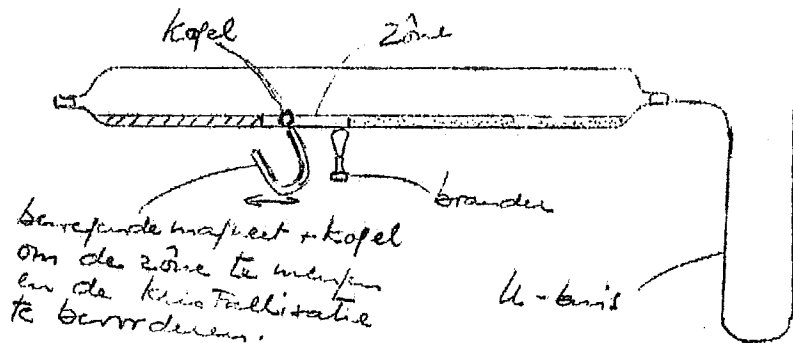 kogel
zône
brander
bewegende magneet + kogel
om de zône te mengen
en de kristallisatie
te bevorderen.
U-buis